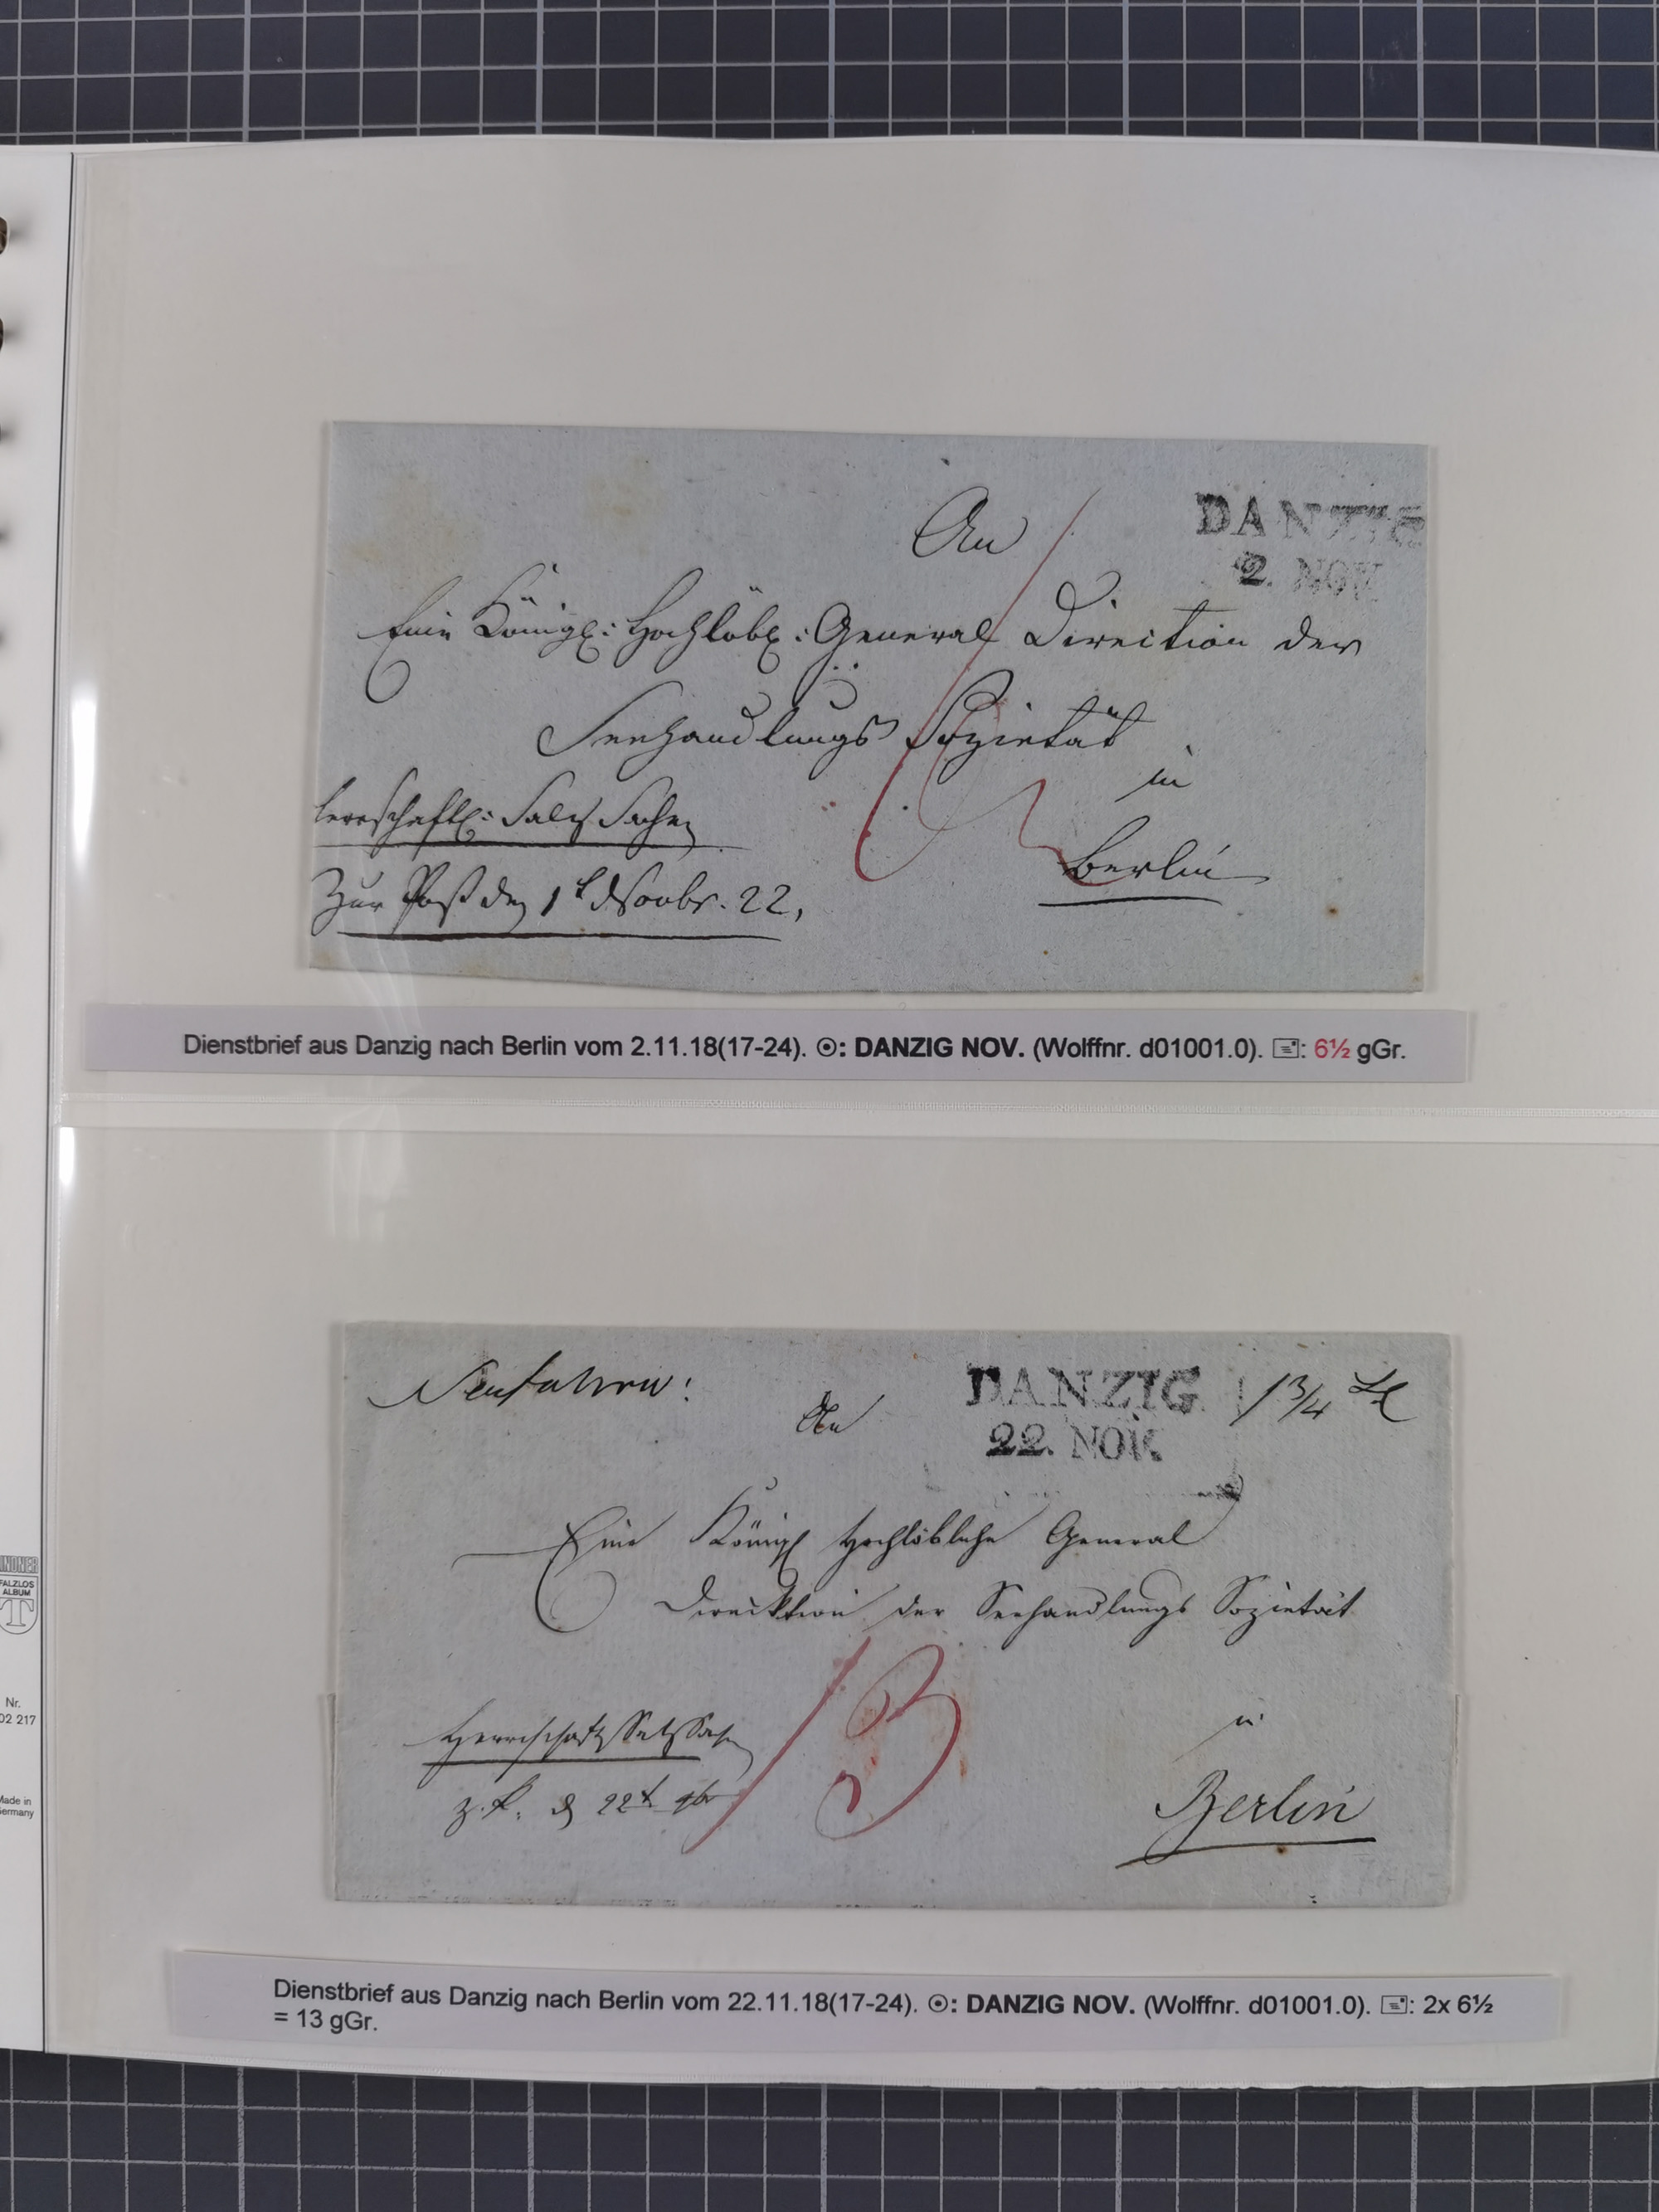 An
DANZIG
2. NOV.
Eine Königl: Hochlöbl: General Direction der
Seehandlungs Sozietät
in
herrschaftl: Salz Sachen
Berlin
Zur Post den 1t Novbr. 22.
Dienstbrief aus Danzig nach Berlin vom 2.11.18(17-24). ☉: DANZIG NOV. (Wolffnr. d01001.0). 🖃: 6½ gGr.
Neufahrw:
An
DANZIG
22. NOV.
1 3/4 Lt
Eine Königl Hochlöbliche General
Direcktion der Seehandlungs Sozietät
13
in
Herrschaftl Salz Sachen
z. P. d 22t 9br
Berlin
Dienstbrief aus Danzig nach Berlin vom 22.11.18(17-24). ☉: DANZIG NOV. (Wolffnr. d01001.0). 🖃: 2x 6½
= 13 gGr.
LINDNER
FALZLOS
ALBUM
T
Nr.
02 217
Made in
Germany